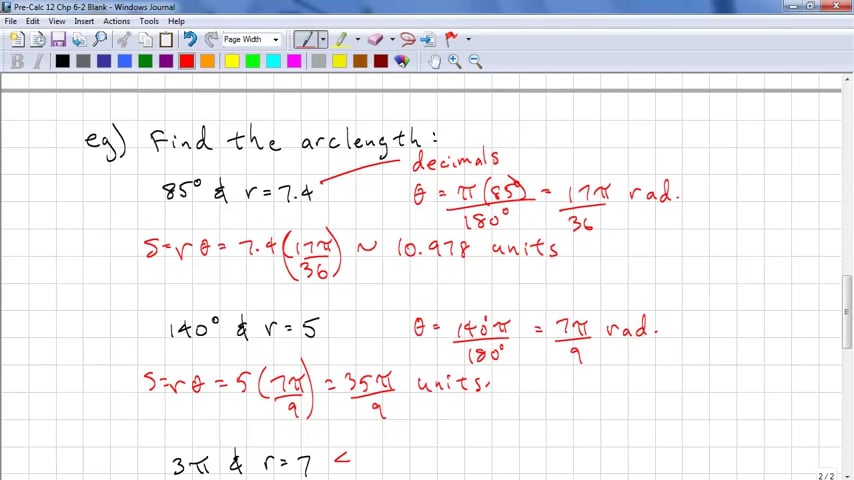 Pre-Calc 12 Chp 6-2 Blank - Windows Journal
File Edit View Insert Actions Tools Help
Page Width
B I
eg) Find the arclength:
decimals
85° & r = 7.4 θ = π(85°)/180° = 17π/36 rad.
S = rθ = 7.4(17π/36) ~ 10.978 units
140° & r = 5 θ = 140°π/180° = 7π/9 rad.
S = rθ = 5(7π/9) = 35π/9 units.
3π & r = 7 <
2/2